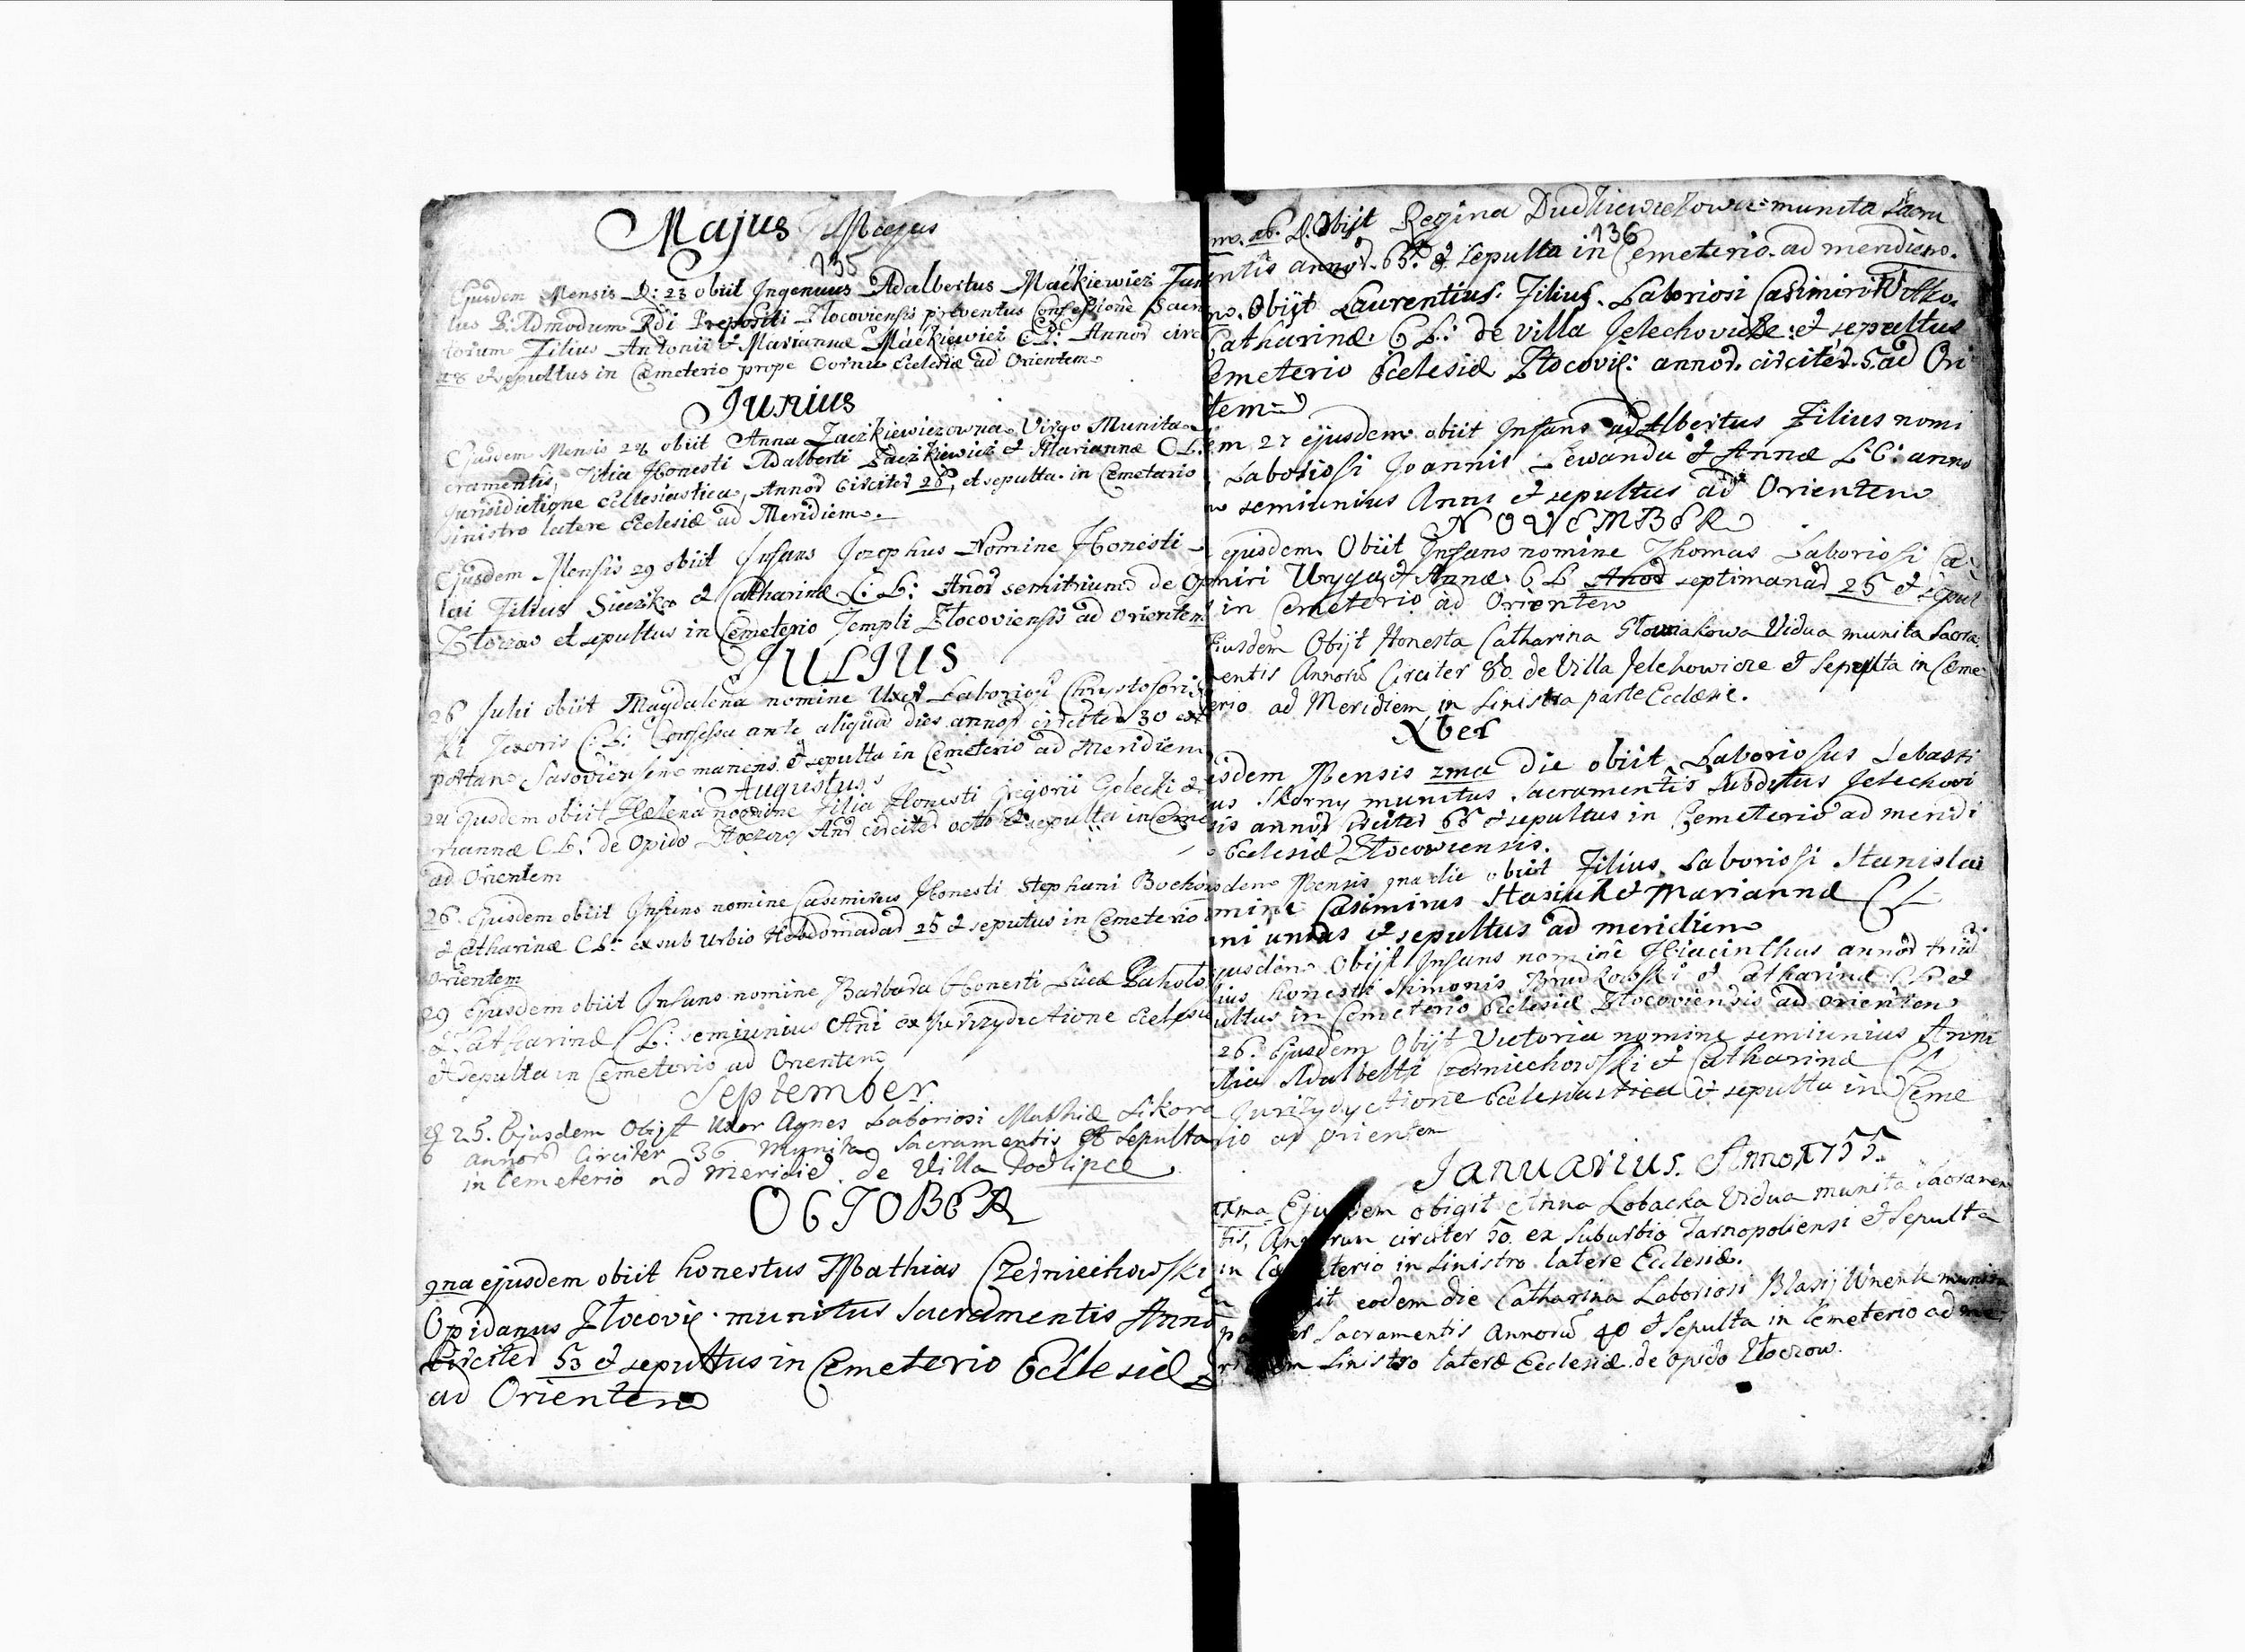 Majus Majus
135
Ejusdem Mensis D: 23 obiit Ingenuus Adalbertus Maćkiewicz Fam
lus P: Admodum Rdi Prepositi Złocoviensis preventus Confessione Sacra
torum Filius Antonii et Mariannæ Maćkiewicz C:L: Annor circ
28 et sepultus in Cæmeterio prope Cornu Ecclesiæ ad Orientem
Junius
Ejusdem Mensis 24 obiit Anna Zaczkiewiczowna Virgo Munita
cramentis, Filia Honesti Adalberti Zaczkiewicz et Mariannæ C L:
Jurisdictione Ecclesiastica, Annor circiter 28, et sepulta in Cemeterio
sinistro latere Ecclesiæ ad Meridiem
Ejusdem Mensis 29 obiit Infans Jozephus Nomine Honesti
lai Filius Sieczka et Catharinæ C: L: Anor semitrium de Op
et sepultus in Cemeterio Templi Złocoviensis ad Orientem
JULIUS
26 Julii obiit Magdalena nomine Uxor Laboriosi Chrystofori
ki Texoris C:L: Confessa ante aliquod dies annor circiter 30 ext
portam Sasoviensem manens et sepulta in Cemeterio ad Meridiem
Augustus
24 ejusdem obiit Hælena nomine Filia Honesti Gregorii Golecki et
riannæ C L: de Opido Anor circiter octo et sepulta in Ceme
ad Orientem
26. Ejusdem obiit Infans nomine Casimirus Honesti Stephani Bochi
et Catharinæ C L: ex sub Urbio Hebdomadar 25 et seputus in Cemeterio
Orientem
29 Ejusdem obiit Infans nomine Barbara Honesti Lucæ
et Catharinæ C L: semiunius Ani ex Juryzdyctione Eclesia
et sepulta in Cemeterio ad Orientem
September
25. Ejusdem Obijt Uxor Agnes Laboriosi Mathiæ Sikora
annor Circiter 36 Munita Sacramentis et Sepulta
in Cemeterio ad Meridie de Villa Podlipce
OCTOBER
9na ejusdem obiit honestus Mathias Czerniechowski
Opidanus Złocovie munitus Sacramentis Anno
Circiter 53 et sepultus in Cemeterio Ecclesiæ
ad Orientem
mo. 26. Obijt Regina Dudkiewiczowa munita Sacra
136
entis annor. 65. et sepulta in Cemeterio ad meridiem.
mo. Obijt Laurentius. Filius. Laboriosi Casimiri Witko
Catharinæ. C L: de villa Jelechovicze et sepultus
Cemeterio Ecclesiæ Złocovie: annor. circiter. 5. ad Ori
tem
em 27 ejusdem obiit Infans Adalbertus Filius nomi
Laboriosi Joannis Lewanda et Annæ L C: anno
semiunius Anni et sepultus ad Orientem
NOVEMBER
ejusdem Obiit Infans nomine Thomas Laboriosi Ca
miri Uryga et Annæ C L Anor septimanar 25 et sepul
in Cemeterio ad Orientem
Ejusdem Obijt Honesta Catharina Vidua munita Sacra
mentis Annorū Circiter 80. de Villa Jelechowicze et Sepulta in Cæme
terio ad Meridiem in Sinistra parte Ecclæsie.
Xber
usdem Mensis 2ma die obiit Laboriosus Sebasti
us Skorny munitus Sacramentis Subditus Jelechovi
sis annor circiter 66 et sepultus in Cemeterio ad meridi
Ecclesiæ Złocowiensis.
sdem Mensis 9na die obiit Filius Laboriosi Stanislai
mine Casimirus Stasiuk et Mariannæ C L
ni unius et sepultus ad meridiem
jusdem Obijt Infans nomine Hiacinthus annor triū
lius honesti Simonis Brudkowski et Catharinæ C L et
ultus in Cemeterio Ecclesiæ Złocoviensis ad orientem
26. Ejusdem Obijt Victoria nomine semiunius Anni
lia Adalberti Czerniechowski et Catharinæ C L
Jurizdyctione Ecclesiastica et sepulta in Ceme
rio ad orientem
Januarius. Anno 1755.
Ejusdem obigit Anna Lobacka Vidua munita Sacramen
tis, Annorum circiter 50. ex Suburbio Tarnopoliensi et Sepulta
in Cæmeterio in Sinistro latere Ecclesiæ.
eodem die Catharina Laboriosi Blasij munita
Sacramentis Annorū 40 et Sepulta in Cemeterio ad me
Sinistro lateræ Ecclesiæ de opido Złoczow.